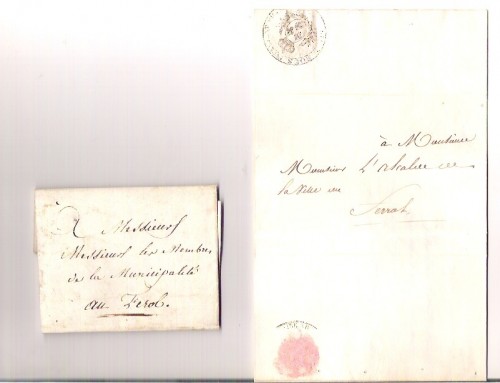 A Messieurs
Messieurs les Membres
de la Municipalité
au Ferol.
à Monsieur
Monsieur L'alcalde de
la ville de
Ferrol